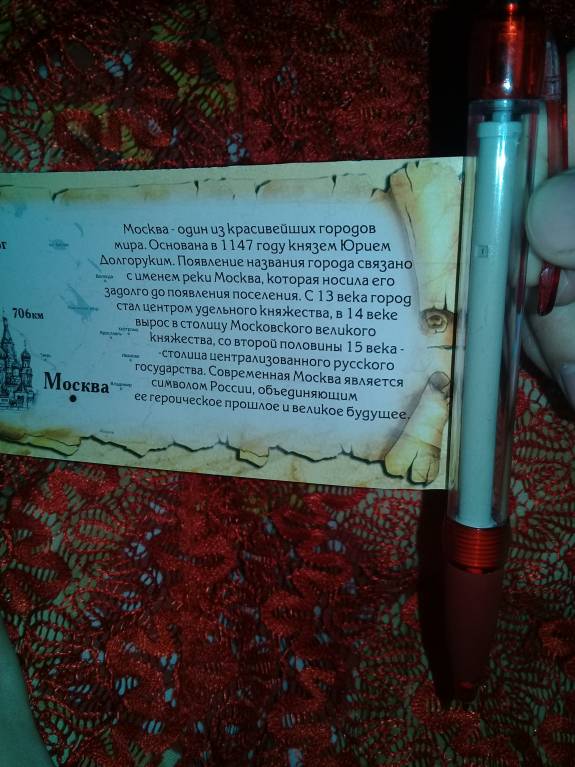 Москва - один из красивейших городов
мира. Основана в 1147 году князем Юрием
Долгоруким. Появление названия города связано
с именем реки Москва, которая носила его
задолго до появления поселения. С 13 века город
стал центром удельного княжества, в 14 веке
вырос в столицу Московского великого
княжества, со второй половины 15 века -
-столица централизованного русского
государства. Современная Москва является
символом России, объединяющим
ее героическое прошлое и великое будущее.
706км
Москва
Владимир